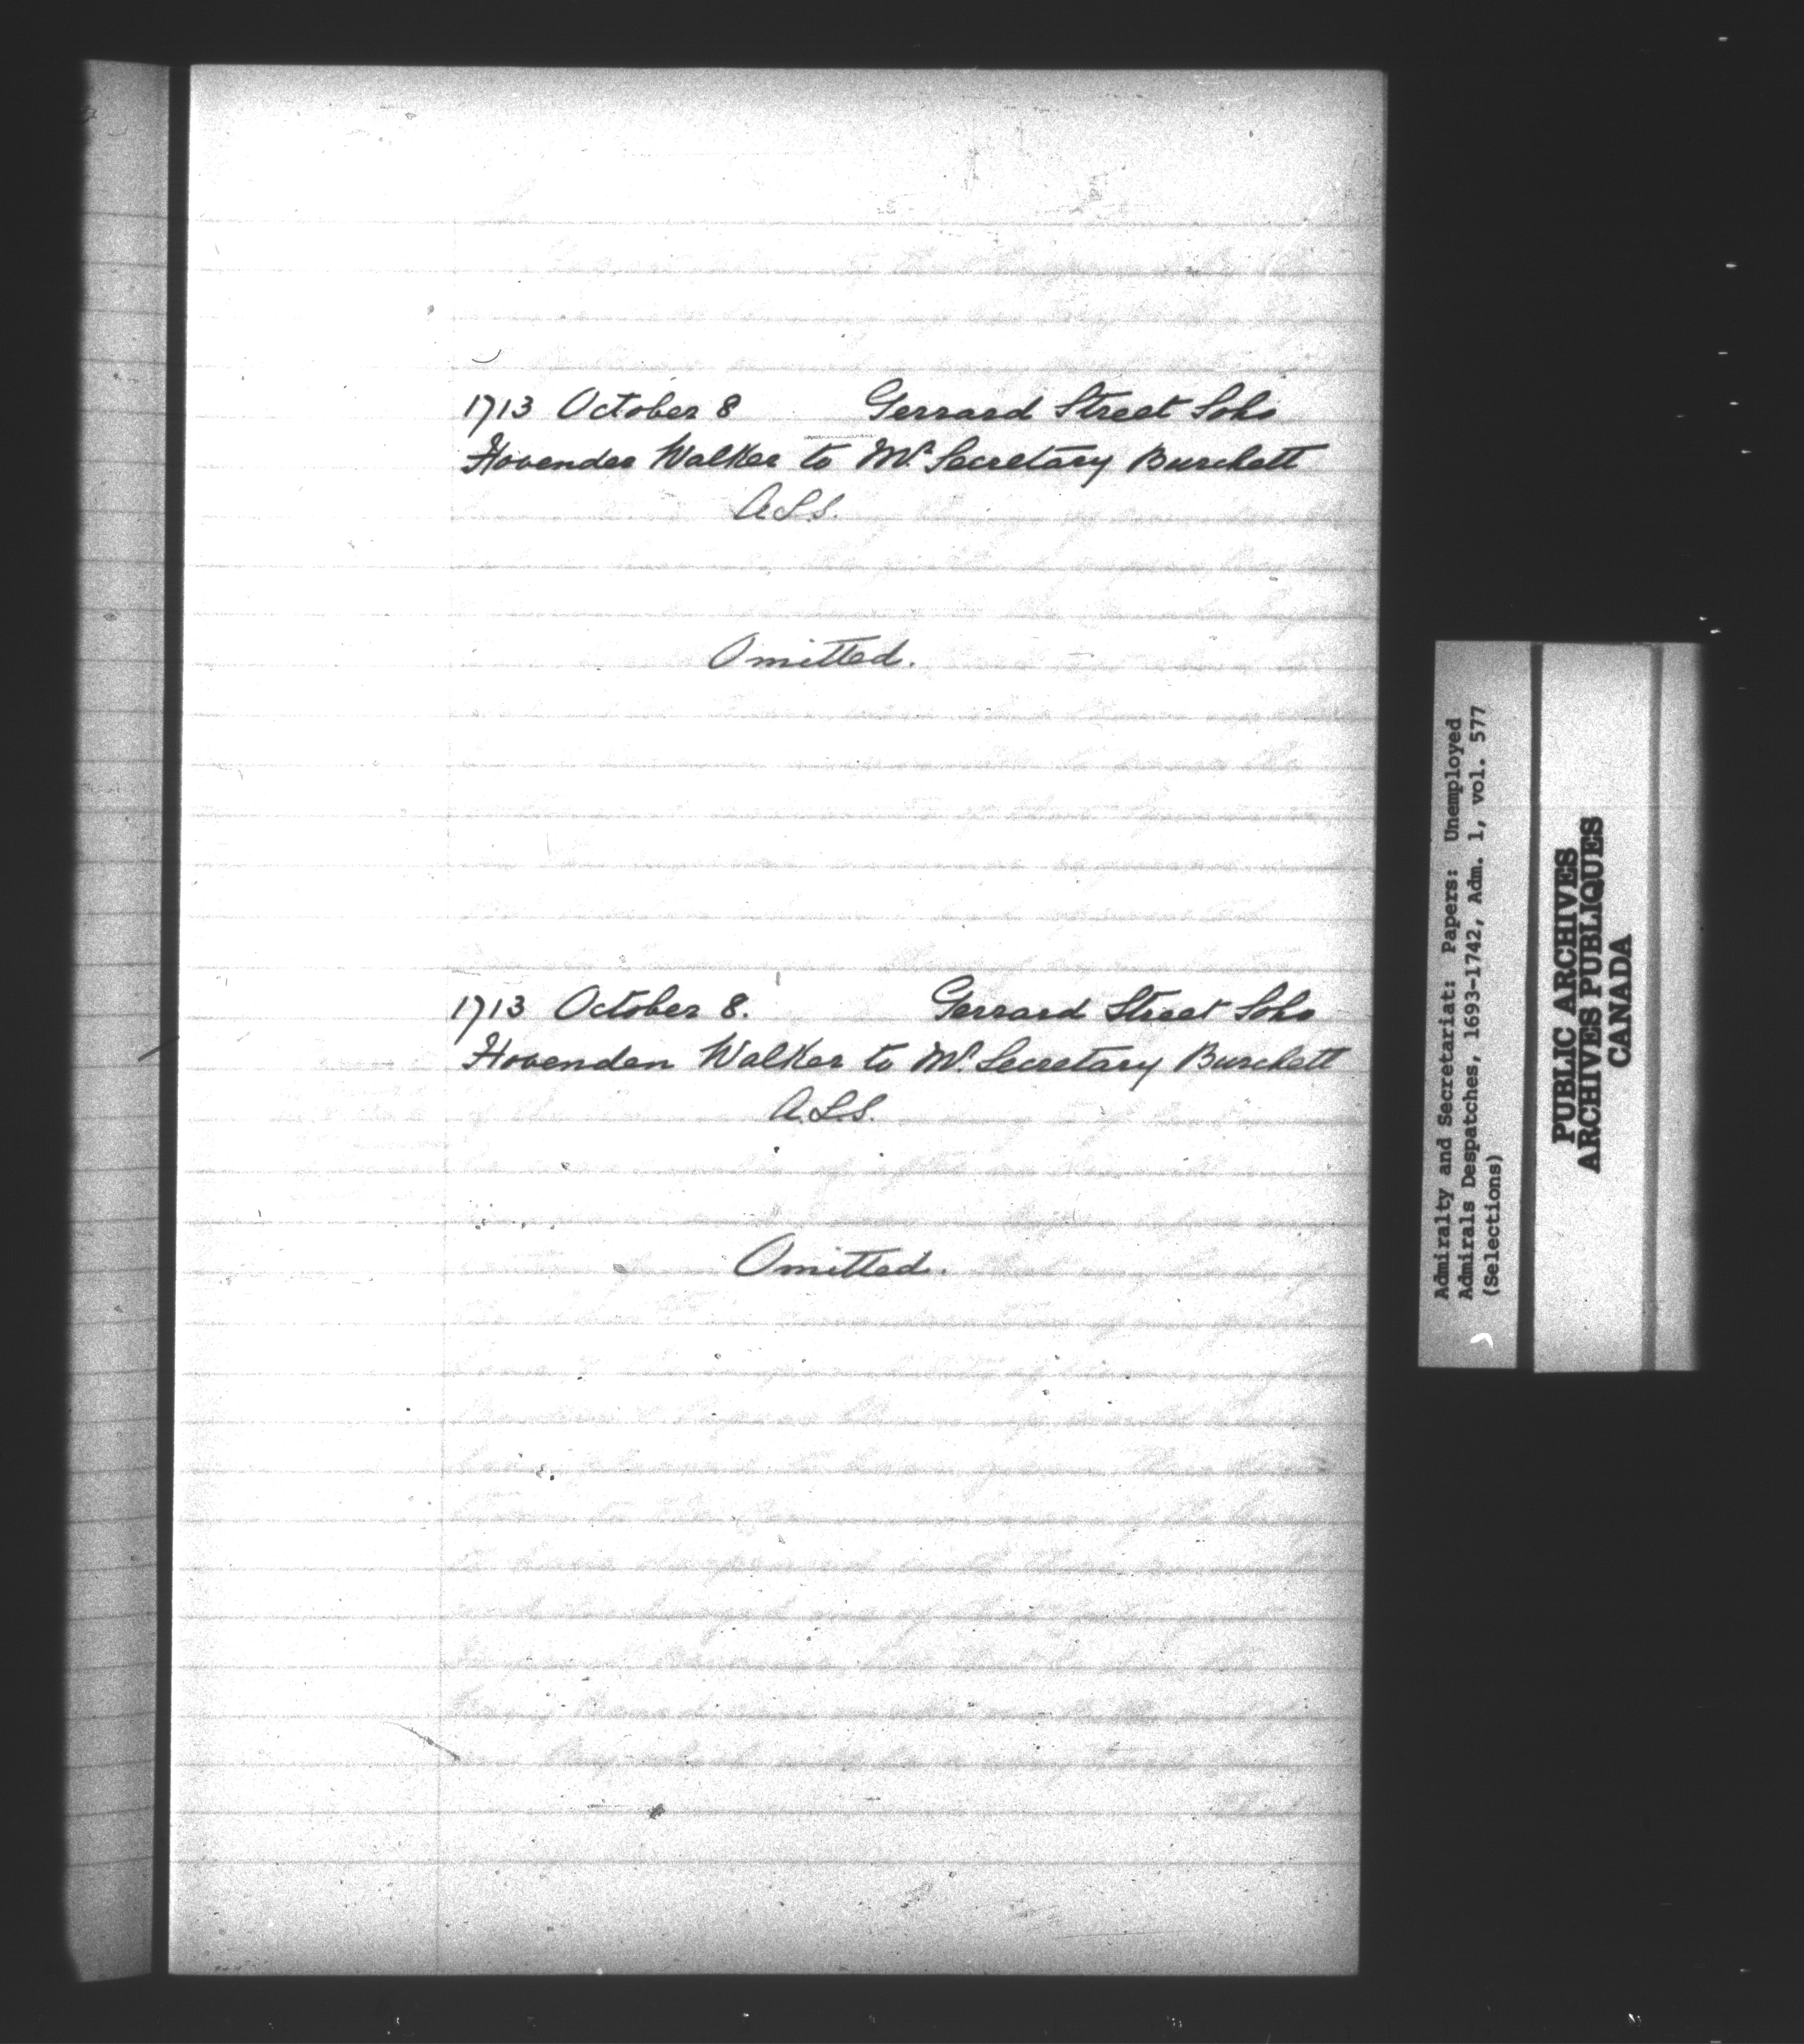 1713 October 8 Gerrard Street Soho
Hovenden Walker to Mr. Secretary Burchett
A.L.S.
Omitted.
1713 October 8. Gerrard Street Soho
Hovenden Walker to Mr. Secretary Burchett
A.L.S.
Omitted.
Admiralty and Secretariat: Papers: Unemployed
Admirals Despatches, 1693-1742, Adm. 1, vol. 577
(Selections)
PUBLIC ARCHIVES
ARCHIVES PUBLIQUES
CANADA